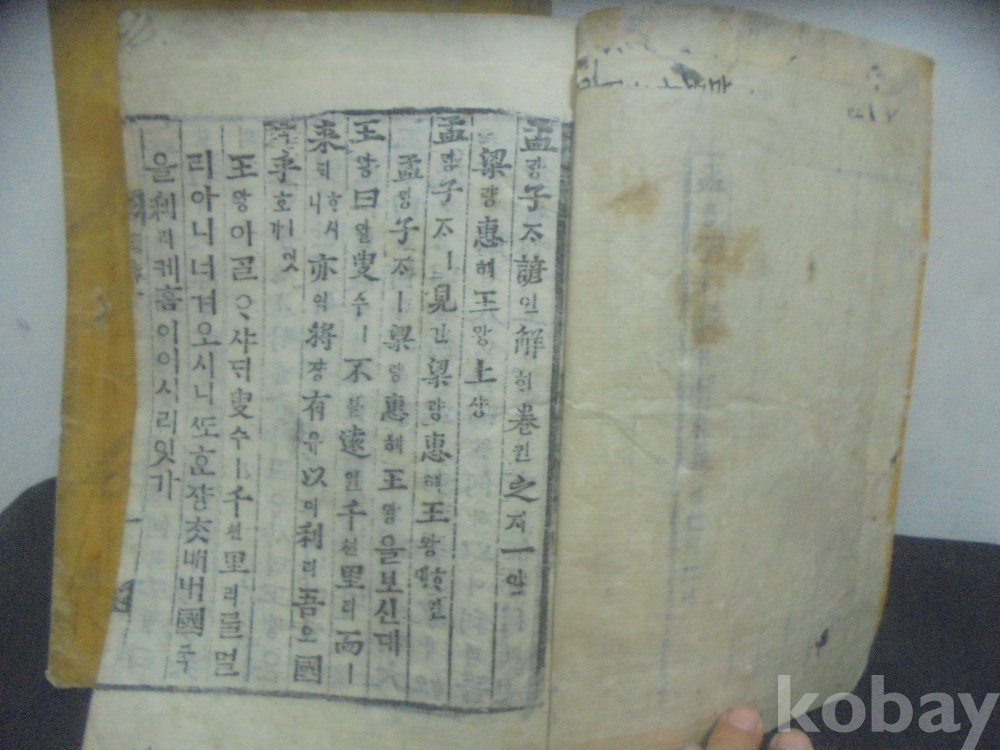 孟ᄆᆡᆼ子ᄌᆞ諺언解ᄒᆡ卷권之지一일
梁량惠혜王왕上샹
孟ᄆᆡᆼ子ᄌᆞㅣ見견梁량惠혜王왕ᄒᆞ신대
孟ᄆᆡᆼ子ᄌᆞㅣ梁량惠혜王왕을보신대
王왕曰왈叟수ㅣ不블遠원千쳔里리而ㅣ
來ᄅᆡᄒᆞ시니亦역將쟝有유以이利리吾오國
乎호ㅣ잇가
王왕이ᄀᆞᆯᄋᆞ샤ᄃᆡ叟수ㅣ千쳔里리ᄅᆞᆯ멀
리아니너겨오시니ᄯᅩᄒᆞᆫ쟝ᄎᆞᆺ내國국
을利리케홈이이시리잇가
kobay